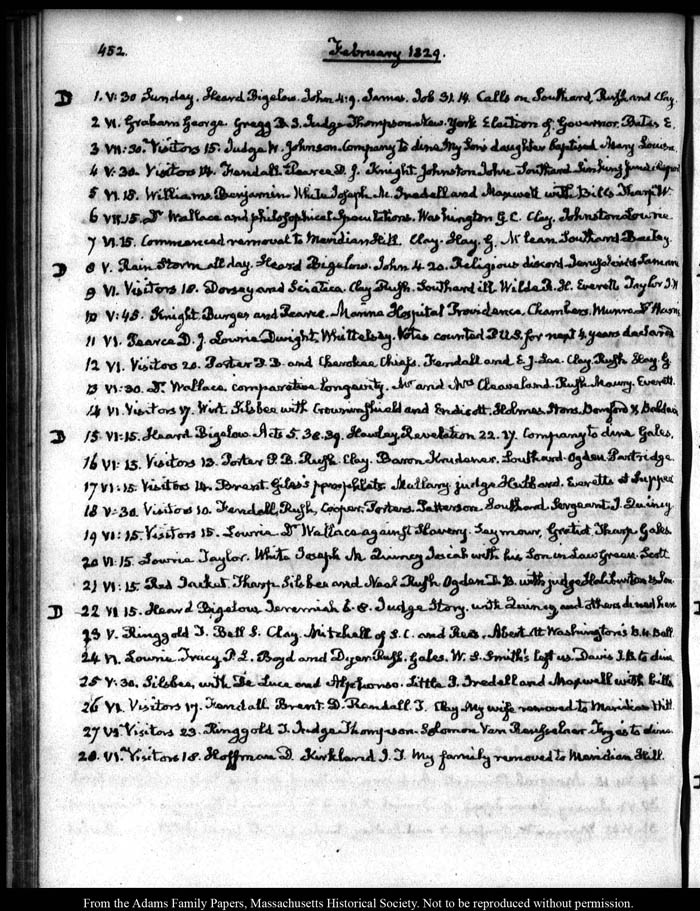 452.
February 1829.
D 1. V: 30 Sunday. Heard Bigelow. John 4:9. James. Job 31. 14. Calls on Southard, Rush and Clay.
2 VI. Graham George. Gregg B. S. Judge Thompson New York Election of Governor. Bates E.
3 VII: 30. Visitors 15. Judge W. Johnson. Company to dine My Son's daughter baptised Mary Louisa.
4 V: 30. Visitors 14. Kendall Pearce D. J. Knight. Johnston John. Southard Sinking fund Report
5 VI. 15. Williams Benjamin White Joseph M. Iredell and Maxwell with Bills Tharp W.
6 VII. 15. Dr Wallace and philosophical Speculations. Washington G. C. Clay. Johnston Lowrie
7 VI. 15. Commenced removal to Meridian Hill. Clay. Hay. G. McLean Southard Bailey.
D 8 V. Rain Storm all day. Heard Bigelow. John 4. 20. Religious discord Samaria
9 VI. Visitors 18. Dorsey and Sciatica. Clay Rush. Southard ill Wilde R. H. Everett Taylor J. W
10 V: 45. Knight, Burges and Pearce. Marine Hospital Providence. Chambers. Munroe
11 VI. Pearce D. J. Lowrie Dwight, Whittelsey. Votes counted P. U. S. for next 4 years declared
12 VI. Visitors 20. Porter P. B. and Cherokee Chiefs. Kendall and E. J. Lee. Clay. Rush Hay. G.
13 VI: 30. Dr Wallace. comparative longevity. Mr and Mrs Cleaveland. Rush Maury. Everett.
14 VI. Visitors 17. Wirt. Silsbee with Crowninshield and Endicott. Holmes. Bomford
D 15 VI: 15. Heard Bigelow. Acts 5. 38. 39. Hawley. Revelation 22. 17. Company to dine Gales.
16 VI: 15. Visitors 13. Porter P. B. Rush. Clay. Baron Krudener. Southard. Ogden Partridge.
17 VI: 15. Visitors 14. Brent. Giles's pamphlets. Mallary. judge Hubbard. Everetts at Supper
18 V: 30. Visitors 10. Kendall, Rush, Cooper. Porters. Patterson. Southard. Sergeant. J. Quincy
19 VI: 15. Visitors 15. Lowrie. Dr Wallace against Slavery. Seymour. Tharp Gales
20 VI: 15. Lowrie Taylor. White Joseph M. Quincy Josiah with his Son in Law Green. Scott
21 VI: 15. Red Jacket. Tharp. Silsbee and Neal Rush Ogden D. B. with judge Haliburton & Son
D 22 VI 15. Heard Bigelow Jeremiah 6. 8. Judge Story. with Quincy and others dined here
23 V. Ringgold T. Bell S. Clay. Mitchell of S. C. and Rees. Abert At Washington's B. N. Ball
24 VI. Lowrie. Tracy P. L. Boyd and Dyer Rush. Gales. W. S. Smith's left us Davis J. B to dine
25 V: 30. Silsbee, with De Luce and Alphonso. Little P. Iredell and Maxwell with bills
26 VI. Visitors 17. Kendall. Brent. D. Randall J. Clay My wife removed to Meridian Hill.
27 VI. Visitors 23. Ringgold T. Judge Thompson. Solomon Van Rensselaer. to dine.
28. VI. Visitors 18. Hoffman D. Kirkland J. T. My family removed to Meridian Hill.
From the Adams Family Papers, Massachusetts Historical Society. Not to be reproduced without permission.